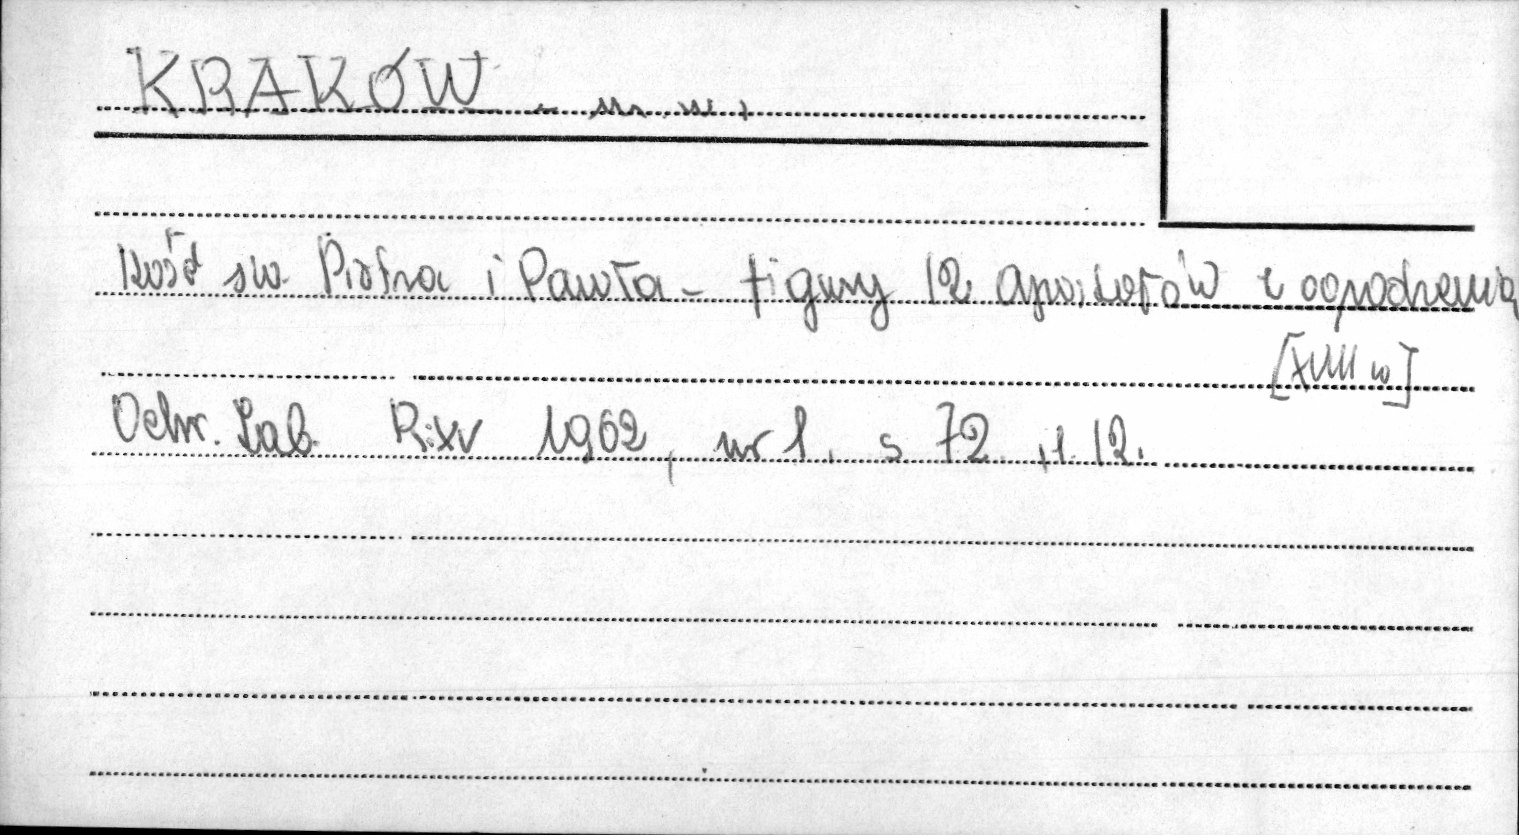 KRAKÓW - m. w.
Kość św. Piotra i Pawła - figury 12 apostołów z ogrodzenia
[XVIII w]
Ochr. Zab. R. XV 1962, nr 1. s 72 il. 12.